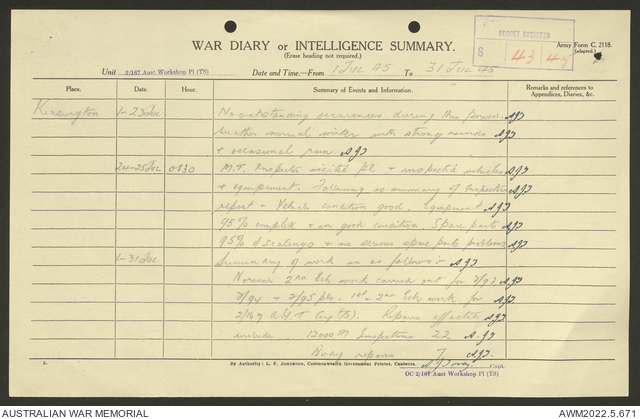 WAR DIARY or INTELLIGENCE SUMMARY.
(Erase heading not required.)
REPORT REGISTER
S 43 45
Army Form C. 2118.
(adapted.)
Unit 2/167 Aust Workshop Pl (TS) Date and Time.—From 1 Jul 45 To 31 Jul 45
Place. Date. Hour. Summary of Events and Information. Remarks and references to Appendices, Diaries, &c.
Kensington 1-23 Jul No outstanding occurences during this period.
Weather normal winter with strong winds
+ occasional rain.
24-25 Jul 0830 M.T. Inspector visited Pl + inspected vehicles
+ equipment. Following is summary of Inspectors
report - Vehicle condition good. Equipment
95% complete + in good condition. Spare parts
95% of scalings + no serious spare parts problems
1-31 Jul Summary of work is as follows:-
Normal 2nd Ech work carried out for 2/93
2/94 + 2/95 Pls. 1st + 2nd Ech work for
2/167 A.G.T Coy (TS). Repairs effected
include 12000 M Inspections 22
Body repairs 7
L. By Authority: L. F. Johnston, Commonwealth Government Printer, Canberra.
Capt.
OC 2/167 Aust Workshop Pl (TS)
AUSTRALIAN WAR MEMORIAL
AWM2022.5.671